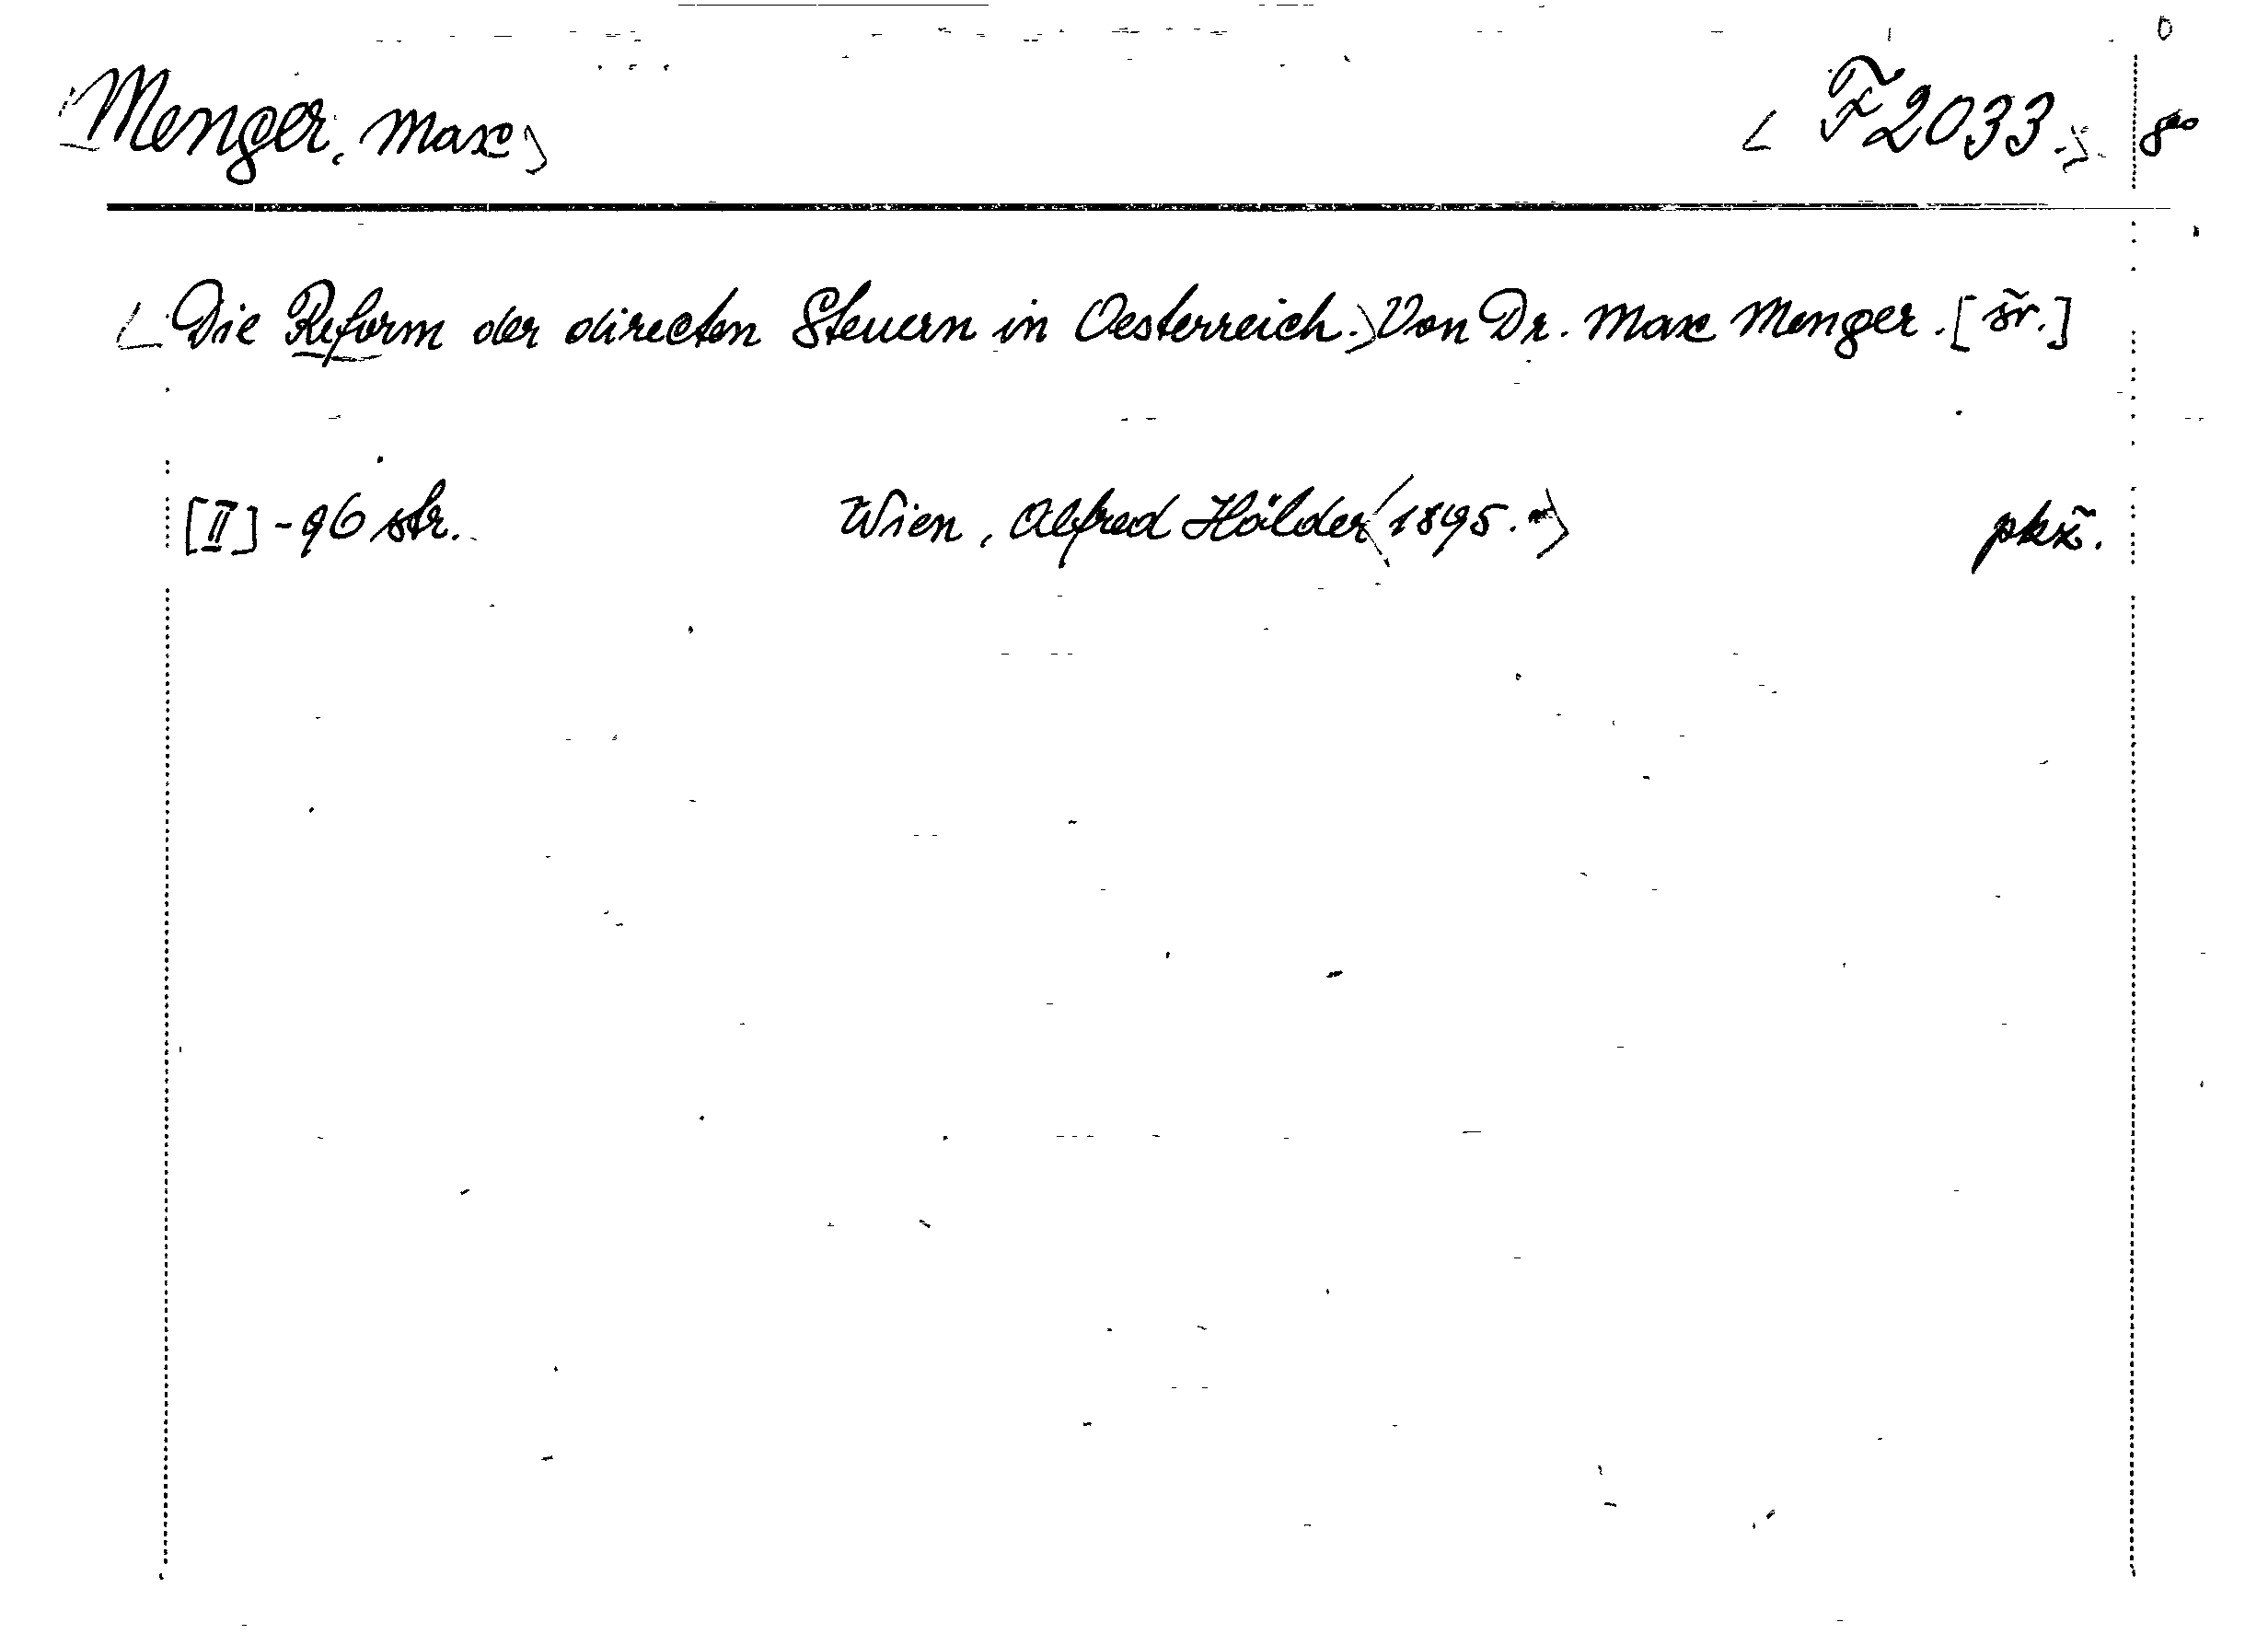 Menger, Max <F 2033.> 8°
<Die Reform der directen Steuern in Oesterreich.> Von Dr. Max Menger. [šr.]
[II] - 96 str. Wien, Alfred Hölder <1895. -> pkž.